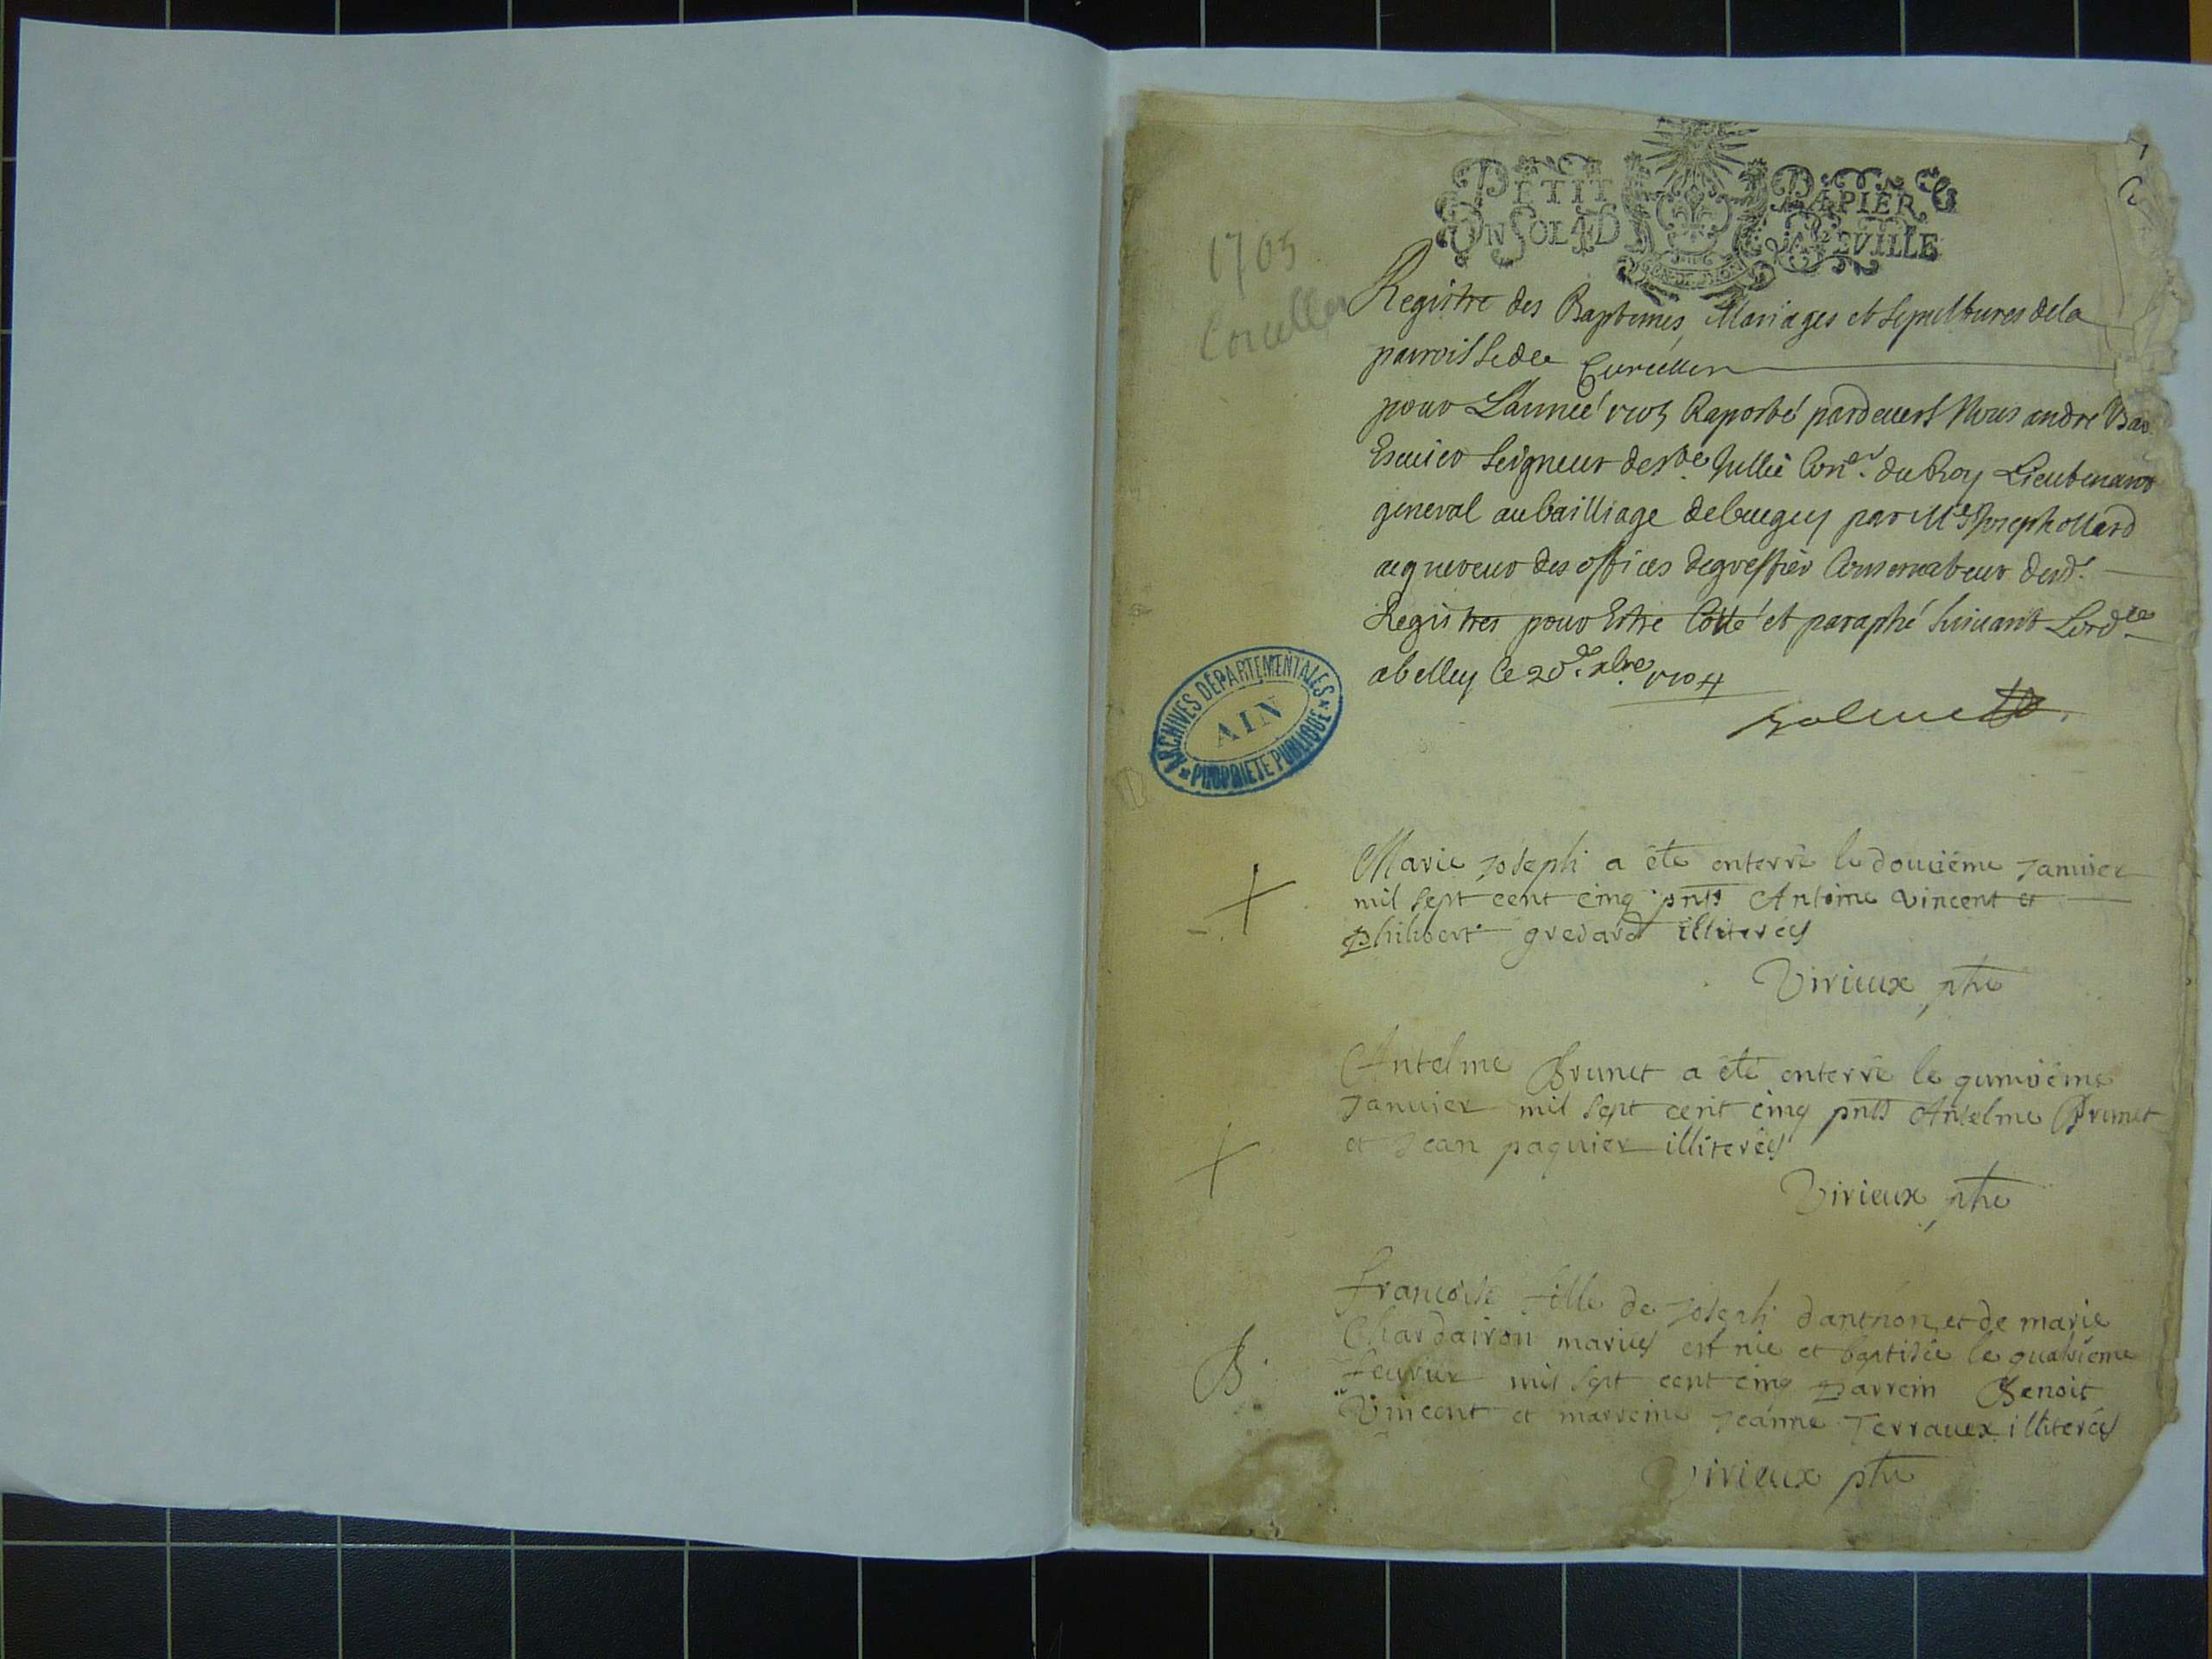 PETIT PAPIER
UN SOL 4 D LA FEUILLE
1705
Corcelles
Registre des Baptemes, Mariages et sepultures dela
parroisse de Curcelles
pour L'année 1705 Raporté pardevers Nous andré
Escuier Seigneur de ste Jullie Con.er du Roy Lieutenant
general au bailliage debeugey par Me Joseph ollard
acquereur des offices degreffier Conservateur desd.
Registres pour Estre Cotté et paraphé suivant Lord.ce
abelley le 20e xbre 1704
Marie Joseph a êté enterré le douzième Janvier
mil sept cent cinq pnts Antoine Vincent et
philibert gredard illiterés
Virieux ptre
Antelme Brunet a êté enterré le quinzième
Janvier mil sept cent cinq pnts Antelme Brunet
et Jean paquier illiterés
Virieux ptre
B.
francoise fille de Joseph danthon et de marie
Chardairon mariés est née et baptisée le quatrième
feuvrier mil sept cent cinq parrein Benoit
Vincent et marreine Jeanne Terraux illiterés
Virieux ptre
ARCHIVES DÉPARTEMENTALES
AIN
PROPRIÉTÉ PUBLIQUE